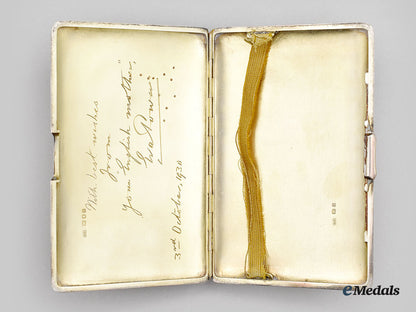 With best wishes
from
your "English mother,"
Eva Power
3rd October, 1930
eMedals